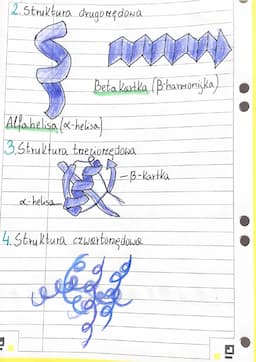 2. Struktura drugorzędowa
Beta kartka (β-harmonijka)
Alfahelisa (α-helisa)
3. Struktura trzeciorzędowa
β-kartka
α-helisa
4. Struktura czwartorzędowa